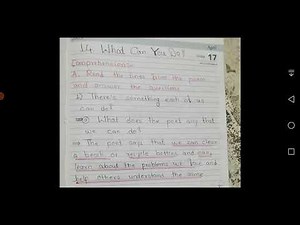 14 What Can You Do?
17
Comprehension
A. Read the lines from the poem
and answer the questions
b) There's something each of us
can do!
What does the poet say that
we can do?
The poet says that we can clean
a beach or recycle bottles and can
learn about the problems we face and
help others understand the same